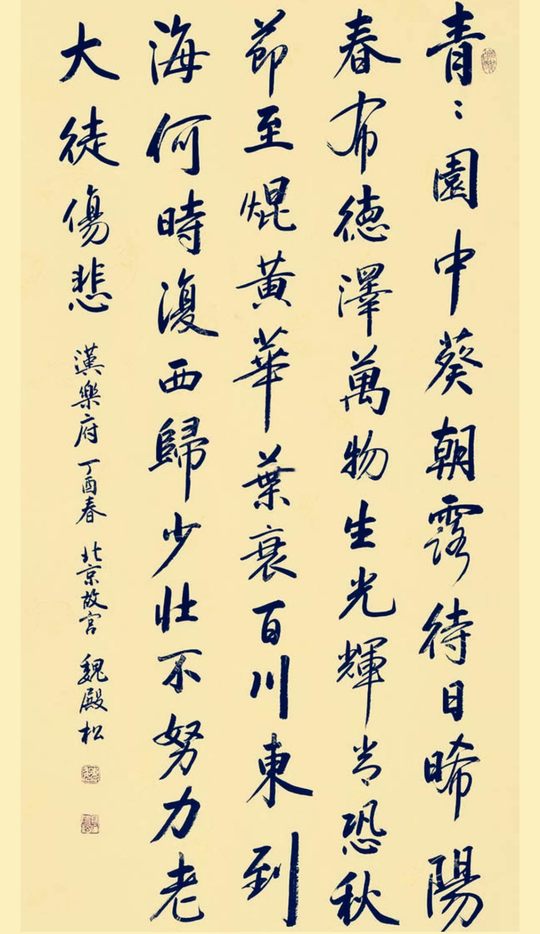 青〻園中葵朝露待日晞陽
春布德澤萬物生光輝常恐秋
節至焜黃華葉衰百川東到
海何時復西歸少壯不努力老
大徒傷悲 漢樂府 丁酉春 北京故宮 魏殿松